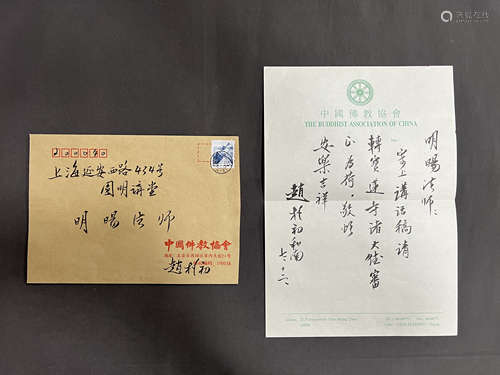 上海延安西路434号
圆明讲堂
明暘法师
中國佛教協會
趙朴初
中國佛教協會
THE BUDDHIST ASSOCIATION OF CHINA
明暘法师：
寄上講话稿请
轉寶蓮寺诸大德審
正为荷。敬颂
安樂吉祥
趙朴初和南
七、十二